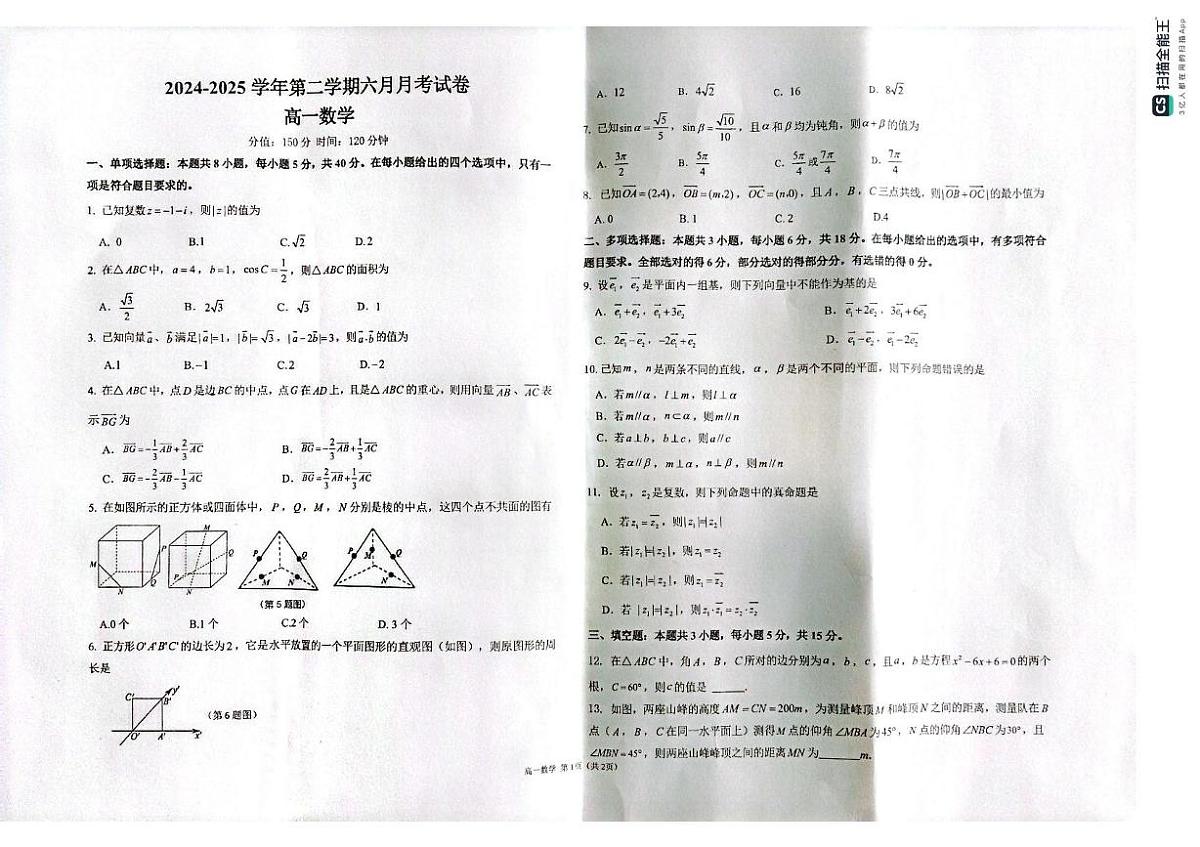 2024-2025 学年第二学期六月月考试卷
高一数学
分值：150分 时间：120分钟
一、单项选择题：本题共8小题，每小题5分，共40分。在每小题给出的四个选项中，只有一
项是符合题目要求的。
1. 已知复数z=-1-i，则|z|的值为
A. 0 B.1 C.√2 D.2
2. 在△ABC中，a=4，b=1，cosC=1/2，则△ABC的面积为
A. √3/2 B. 2√3 C. √3 D. 1
3. 已知向量a⃗、b⃗满足|a⃗|=1，|b⃗|=√3，|a⃗-2b⃗|=3，则a⃗·b⃗的值为
A.1 B.-1 C.2 D.-2
4. 在△ABC中，点D是边BC的中点，点G在AD上，且是△ABC的重心，则用向量AB、AC表
示BG为
A. BG=-1/3AB+2/3AC B. BG=-2/3AB+1/3AC
C. BG=-2/3AB-1/3AC D. BG=2/3AB+1/3AC
5. 在如图所示的正方体或四面体中，P，Q，M，N分别是棱的中点，这四个点不共面的图有
M P Q N M Q P N P Q M N P M Q N
（第5题图）
A.0个 B.1个 C.2个 D. 3个
6. 正方形O'A'B'C'的边长为2，它是水平放置的一个平面图形的直观图（如图），则原图形的周
长是
C' B' y' O' A' x'
（第6题图）
A. 12 B. 4√2 C. 16 D. 8√2
7. 已知sinα=√5/5，sinβ=√10/10，且α和β均为钝角，则α+β的值为
A. 3π/2 B. 5π/4 C. 5π/4或7π/4 D. 7π/4
8. 已知OA=(2,4)，OB=(m,2)，OC=(n,0)，且A，B，C三点共线，则|OB+OC|的最小值为
A. 0 B. 1 C. 2 D.4
二、多项选择题：本题共3小题，每小题6分，共18分。在每小题给出的选项中，有多项符合
题目要求。全部选对的得6分，部分选对的得部分分，有选错的得0分。
9. 设e₁，e₂是平面内一组基，则下列向量中不能作为基的是
A. e₁+e₂，e₁+3e₂ B. e₁+2e₂，3e₁+6e₂
C. 2e₁-e₂，-2e₁+e₂ D. e₁-e₂，e₁-2e₂
10. 已知m，n是两条不同的直线，α，β是两个不同的平面，则下列命题错误的是
A. 若m//α，l⊥m，则l⊥α
B. 若m//α，n⊂α，则m//n
C. 若a⊥b，b⊥c，则a//c
D. 若α//β，m⊥α，n⊥β，则m//n
11. 设z₁，z₂是复数，则下列命题中的真命题是
A. 若z₁=z̄₂，则|z₁|=|z₂|
B. 若|z₁|=|z₂|，则z₁=z₂
C. 若|z₁|=|z₂|，则z₁=z̄₂
D. 若 |z₁|=|z₂|，则z₁·z̄₁=z₂·z̄₂
三、填空题：本题共3小题，每小题5分，共15分。
12. 在△ABC中，角A，B，C所对的边分别为a，b，c，且a，b是方程x²-6x+6=0的两个
根，C=60°，则c的值是 ______.
13. 如图，两座山峰的高度AM=CN=200m，为测量峰顶M和峰顶N之间的距离，测量队在B
点（A，B，C在同一水平面上）测得M点的仰角∠MBA为45°，N点的仰角∠NBC为30°，且
∠MBN=45°，则两座山峰峰顶之间的距离MN为______m.
高一数学 第1页（共2页）
CS 扫描全能王
3亿人都在用的扫描App